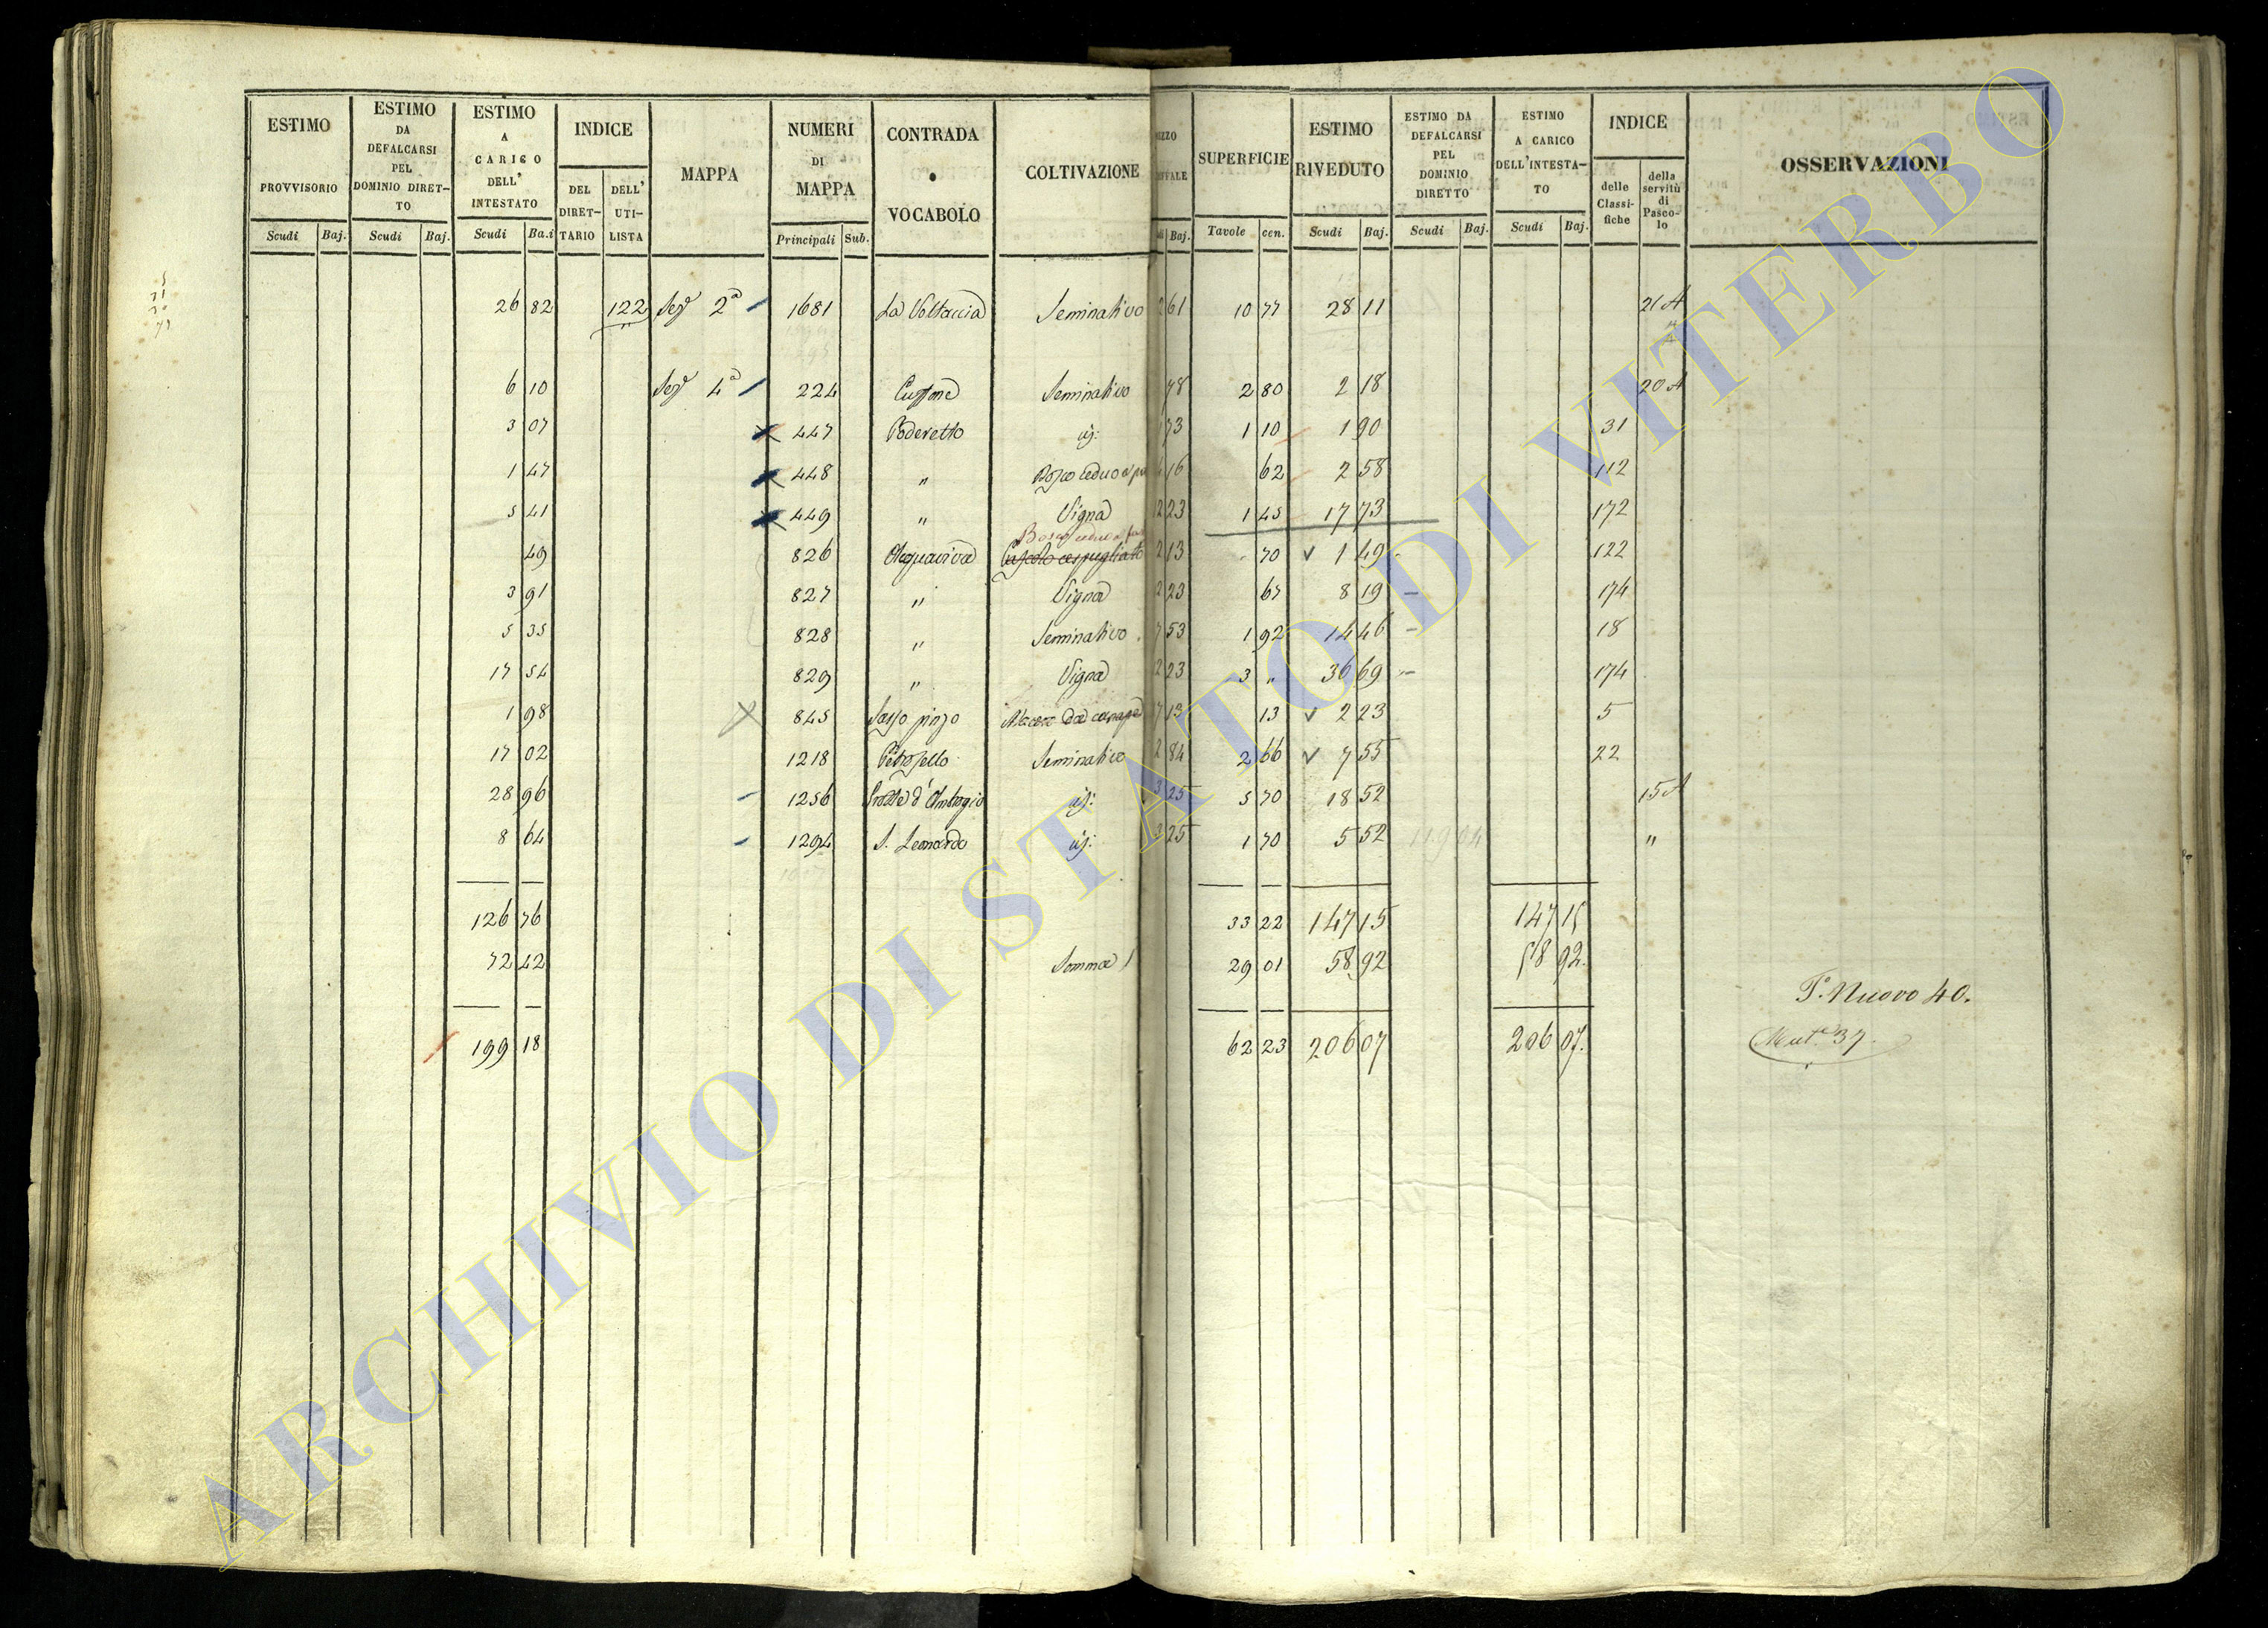 ESTIMO PROVVISORIO | ESTIMO DA DEFALCARSI PEL DOMINIO DIRET-TO | ESTIMO A CARICO DELL' INTESTATO | INDICE | MAPPA | NUMERI DI MAPPA | CONTRADA o VOCABOLO | COLTIVAZIONE | SUPERFICIE | ESTIMO RIVEDUTO | ESTIMO DA DEFALCARSI PEL DOMINIO DIRETTO | ESTIMO A CARICO DELL'INTESTA-TO | INDICE | OSSERVAZIONI
DEL DIRET-TARIO | DELL' UTI-LISTA | delle Classi-fiche | della servitù di Pasco-lo
Scudi | Baj. | Scudi | Baj. | Scudi | Ba.i | Principali | Sub. | Baj. | Tavole | cen. | Scudi | Baj. | Scudi | Baj. | Scudi | Baj.
26 82 | 122 | 2ª | 1681 | La Voltaccia | Seminativo | 2 61 | 10 77 | 28 11 | 21 A
6 10 | 4ª | 224 | Seminativo | 78 | 2 80 | 2 18 | 20 A
3 07 | 447 | Poderetto | 73 | 1 10 | 1 90 | 31
1 47 | 448 | " | Bosco ceduo | 4 16 | 62 | 2 58 | 112
5 41 | 449 | " | Vigna | 12 23 | 1 45 | 17 73 | 172
Bosco ceduo
49 | 826 | Acquaviva | Pascolo cespugliato | 2 13 | 70 | 1 49 | 122
3 91 | 827 | " | Vigna | 12 23 | 67 | 8 19 | 174
5 35 | 828 | " | Seminativo | 7 53 | 1 92 | 14 46 | 18
17 54 | 829 | " | Vigna | 12 23 | 3 " | 36 69 | 174
1 98 | 845 | Sasso pinzo | 17 13 | 13 | 2 23 | 5
17 02 | 1218 | Petrosello | Seminativo | 2 84 | 2 66 | 7 55 | 22
28 96 | 1256 | d'Ambrogio | 3 25 | 5 70 | 18 52 | 15 A
8 64 | 1294 | S. Leonardo | 3 25 | 1 70 | 5 52 | 119 04 | "
126 76 | 33 22 | 147 15 | 147 15
72 42 | Somma | 29 01 | 58 92 | 58 92.
Nuovo 40.
199 18 | 62 23 | 206 07 | 206 07. | 37.
ARCHIVIO DI STATO DI VITERBO